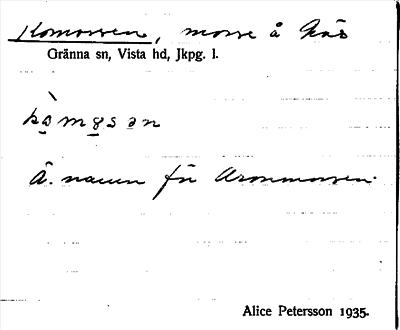 Komossen, mosse å Näs
Gränna sn, Vista hd, Jkpg. l.
kòmosən
Ä. namn för Aronmossen.
Alice Petersson 1935.